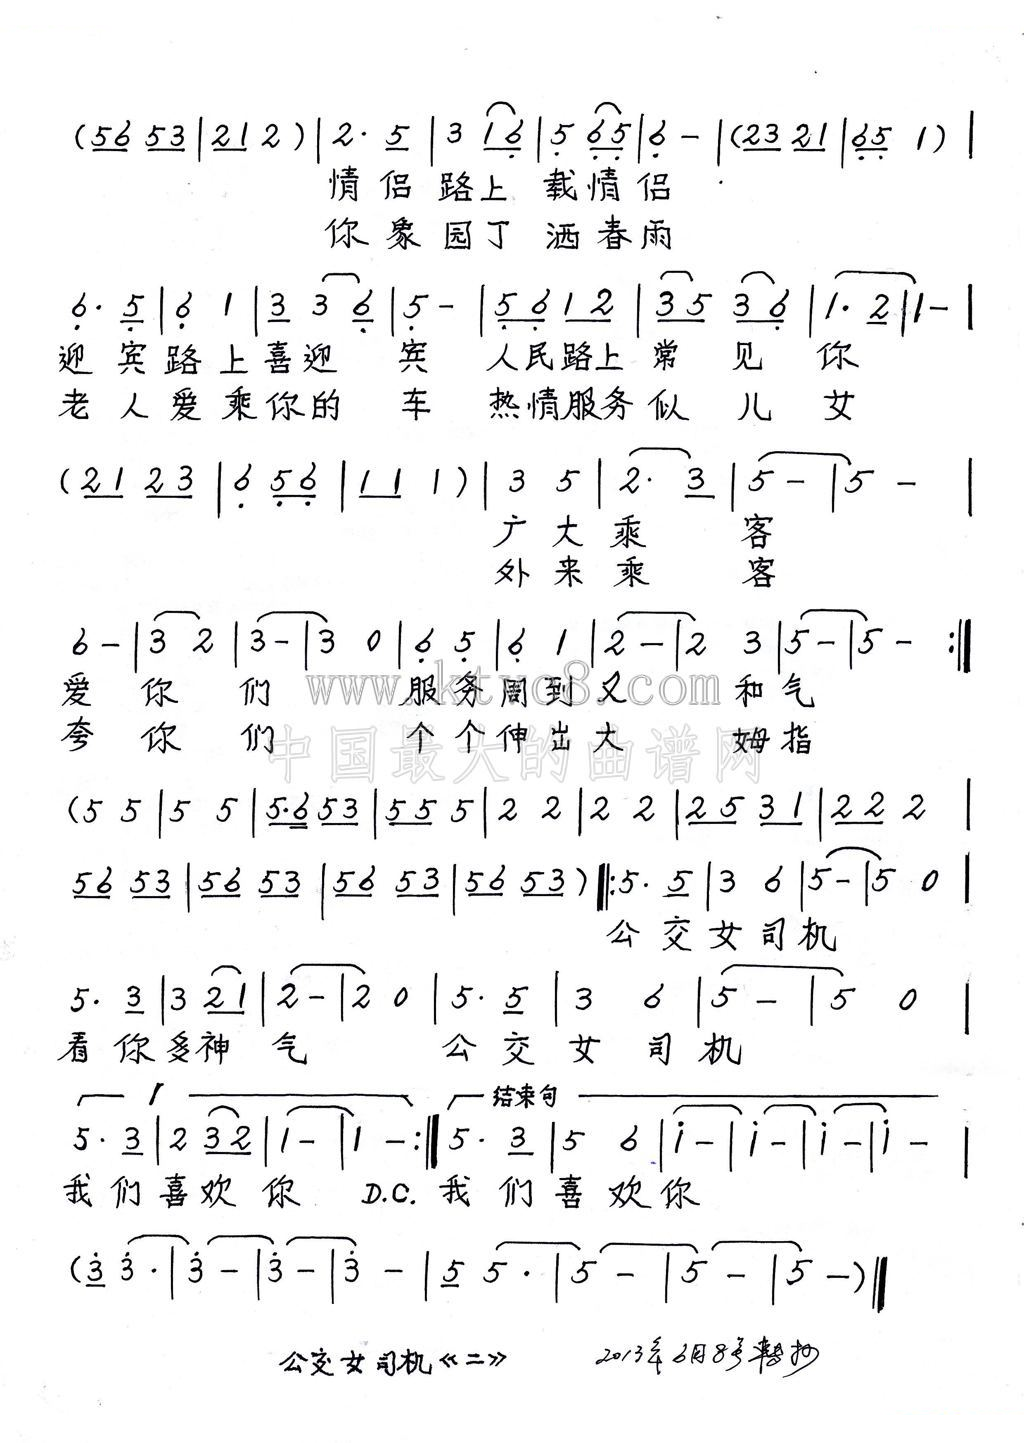 (56 53 | 21 2 ) | 2· 5 | 3 16 | 5 65 | 6 - | (23 21 | 65 1 ) |
情侣路上 载情侣
你象园丁 洒春雨
6· 5 | 6 1 | 3 3 6 | 5 - | 56 12 | 35 36 | 1· 2 | 1 - |
迎宾路上喜迎 宾 人民路上 常 见 你
老人爱乘你的 车 热情服务 似 儿 女
(21 23 | 6 56 | 11 1 ) | 3 5 | 2· 3 | 5 - | 5 - |
广大乘 客
外来乘 客
6 - | 3 2 | 3 - | 3 0 | 6 5 | 6 1 | 2 - | 2 3 | 5 - | 5 - :||
爱 你 们 服务周到又 和气
www.ktvc8.com
夸 你 们 个个伸出大 姆指
中国最大的曲谱网
(5 5 | 5 5 | 5·6 53 | 55 5 | 2 2 | 2 2 | 25 31 | 22 2 |
56 53 | 56 53 | 56 53 | 56 53 ) ||: 5· 5 | 3 6 | 5 - | 5 0 |
公交女司机
5· 3 | 3 21 | 2 - | 2 0 | 5· 5 | 3 6 | 5 - | 5 0 |
看你多神 气 公交女司机
1 结束句
5· 3 | 2 32 | 1 - | 1 - :|| 5· 3 | 5 6 | i - | i - | i - | i - |
我们喜欢你 D.C. 我们喜欢你
(3 3· | 3 - | 3 - | 3 - | 5 5· | 5 - | 5 - | 5 - ) ||
公交女司机《二》 2013年6月8号转抄